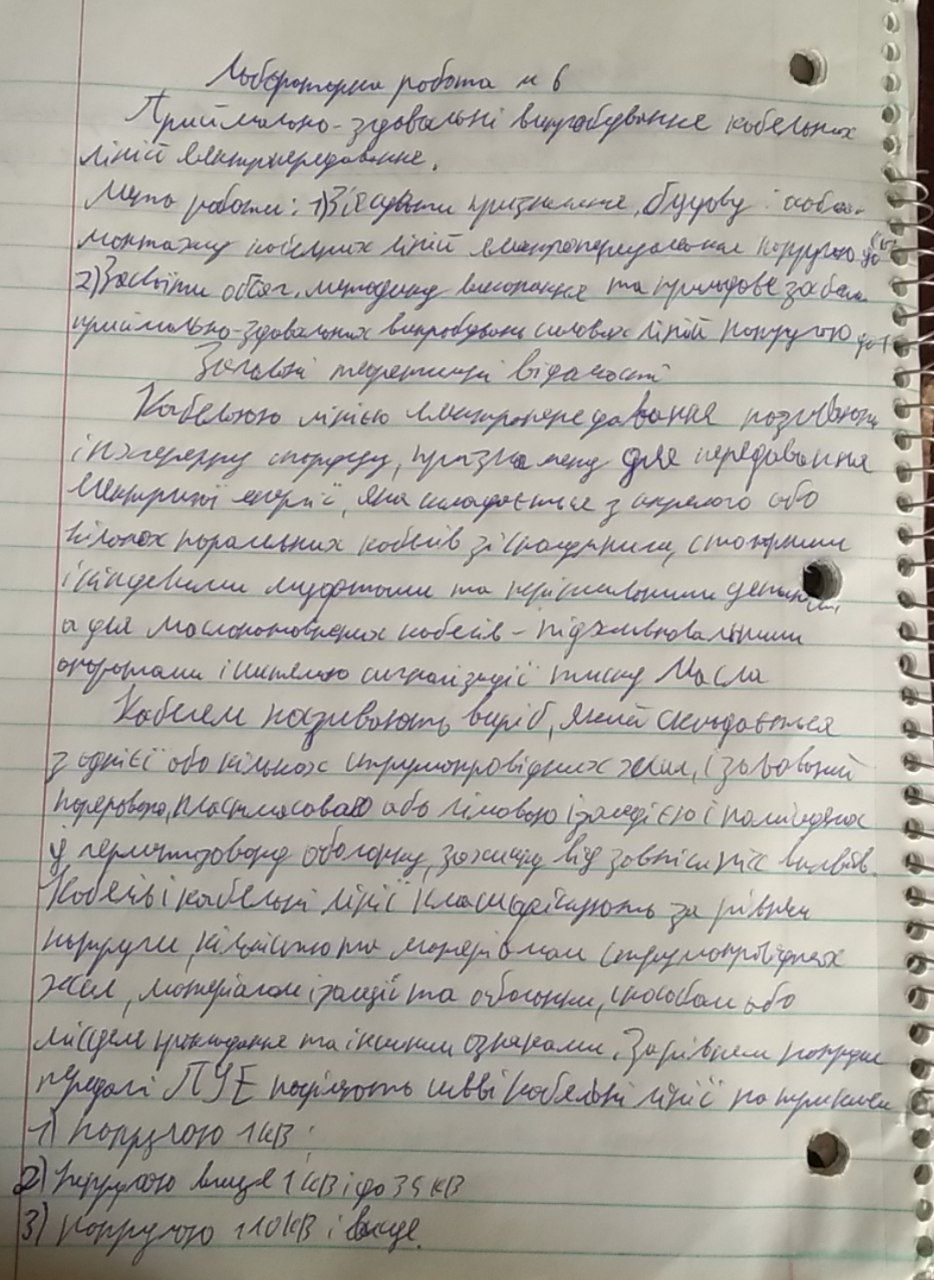 Лабораторна робота № 6
Приймально-здавальні випробування кабельних
ліній електропередавання.
Мета роботи: 1) З'ясувати призначення, будову і особл.
монтажу кабельних ліній електропередавання напругою до
2) Засвоїти обсяг, методику виконання та приладове забезп.
приймально-здавальних випробувань силових ліній напругою до 1
Загальні теоретичні відомості
Кабельною лінією електропередавання називають
інженерну споруду, призначену для передавання
електричної енергії, яка складається з окремого або
кількох паралельних кабелів зі сполучними, стопорними
і кінцевими муфтами та кріпильними деталями,
а для маслонаповнених кабелів - підживлювальними
апаратами і системою сигналізації тиску масла
Кабелем називають виріб, який складається
з однієї або кількох струмопровідних жил, ізольований
паперовою, пластмасовою або гумовою ізоляцією і поміщених
у герметизовану оболонку, захищену від зовнішніх впливів.
Кабелі і кабельні лінії класифікують за рівнем
напруги, кількістю та матеріалом струмопровідних
жил, матеріалом ізоляції та оболонки, способом або
місцем прокладання та іншими ознаками. За рівнем напруги
ПУЕ поділяють кабельні лінії на
1) напругою 1 кВ;
2) напругою вище 1 кВ і до 35 кВ
3) напругою 110 кВ і вище.